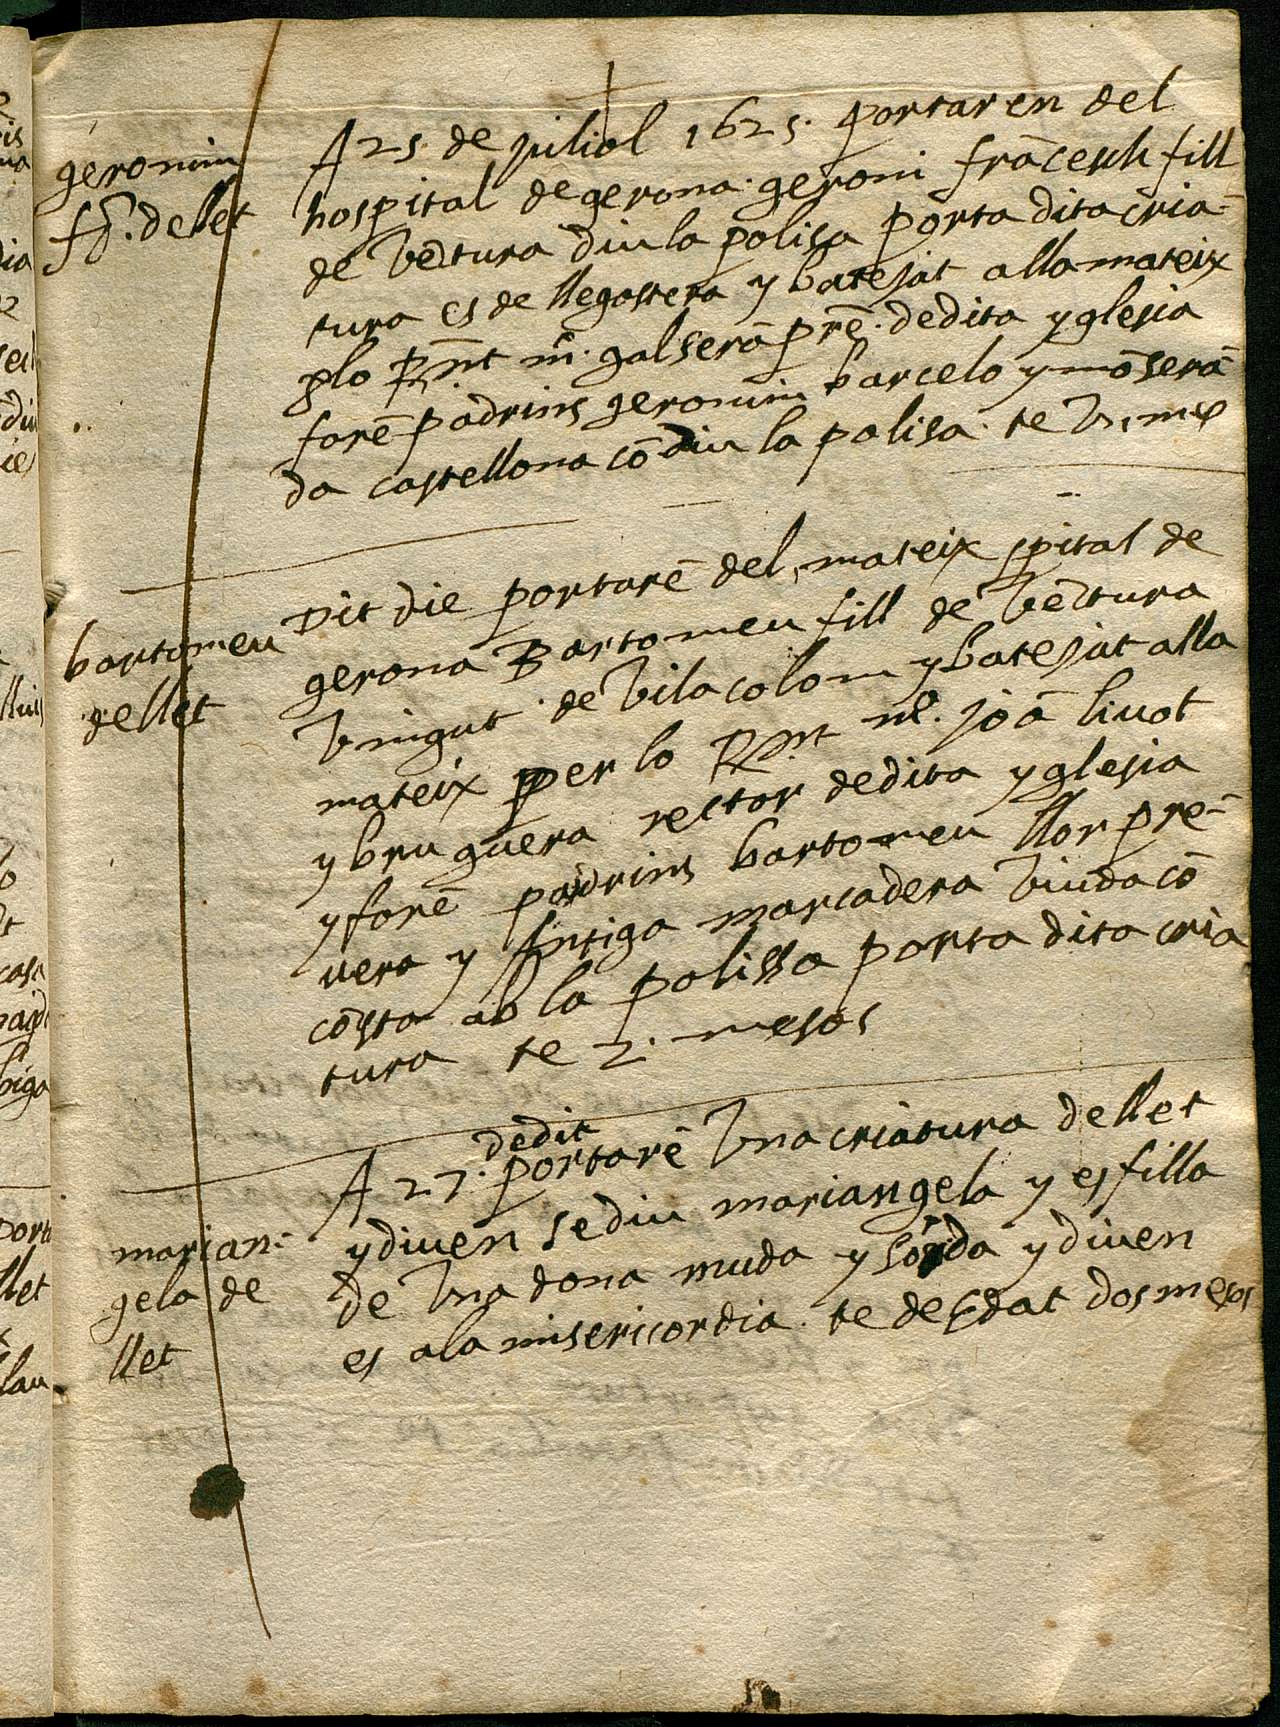 geronim
fr̃. dellet
A 25 de juliol 1625. portaren del
hospital de gerona. geroni frācesch fill
de vētura diu la polisa porta dita cria-
tura es de llegostera y batejat alla mateix
plo Rnt mº. galserā prē. dedita yglesia
forē padrins geronim barcelo y mōserā
da castellona cō diu la polisa. te un mes
bartomeu
dellet
Dit die portarē del mateix spital de
gerona Bartomeu fill de vētura
vingut de vilacolom y batejat alla
mateix per lo Rnt mº. joā livot
y bruguera rector dedita yglesia
y forē padrins bartomeu llor pre-
vera y Antiga marcadera viuda cō
cōsta ab la polissa porta dita cria
tura te 2. mesos
marian-
gela de
llet
dedit
A 27. portarē una criatura dellet
y diuen se diu mariangela y es filla
de una dona muda y sorda y diuen
es ala misericordia. te de Edat dos mesos